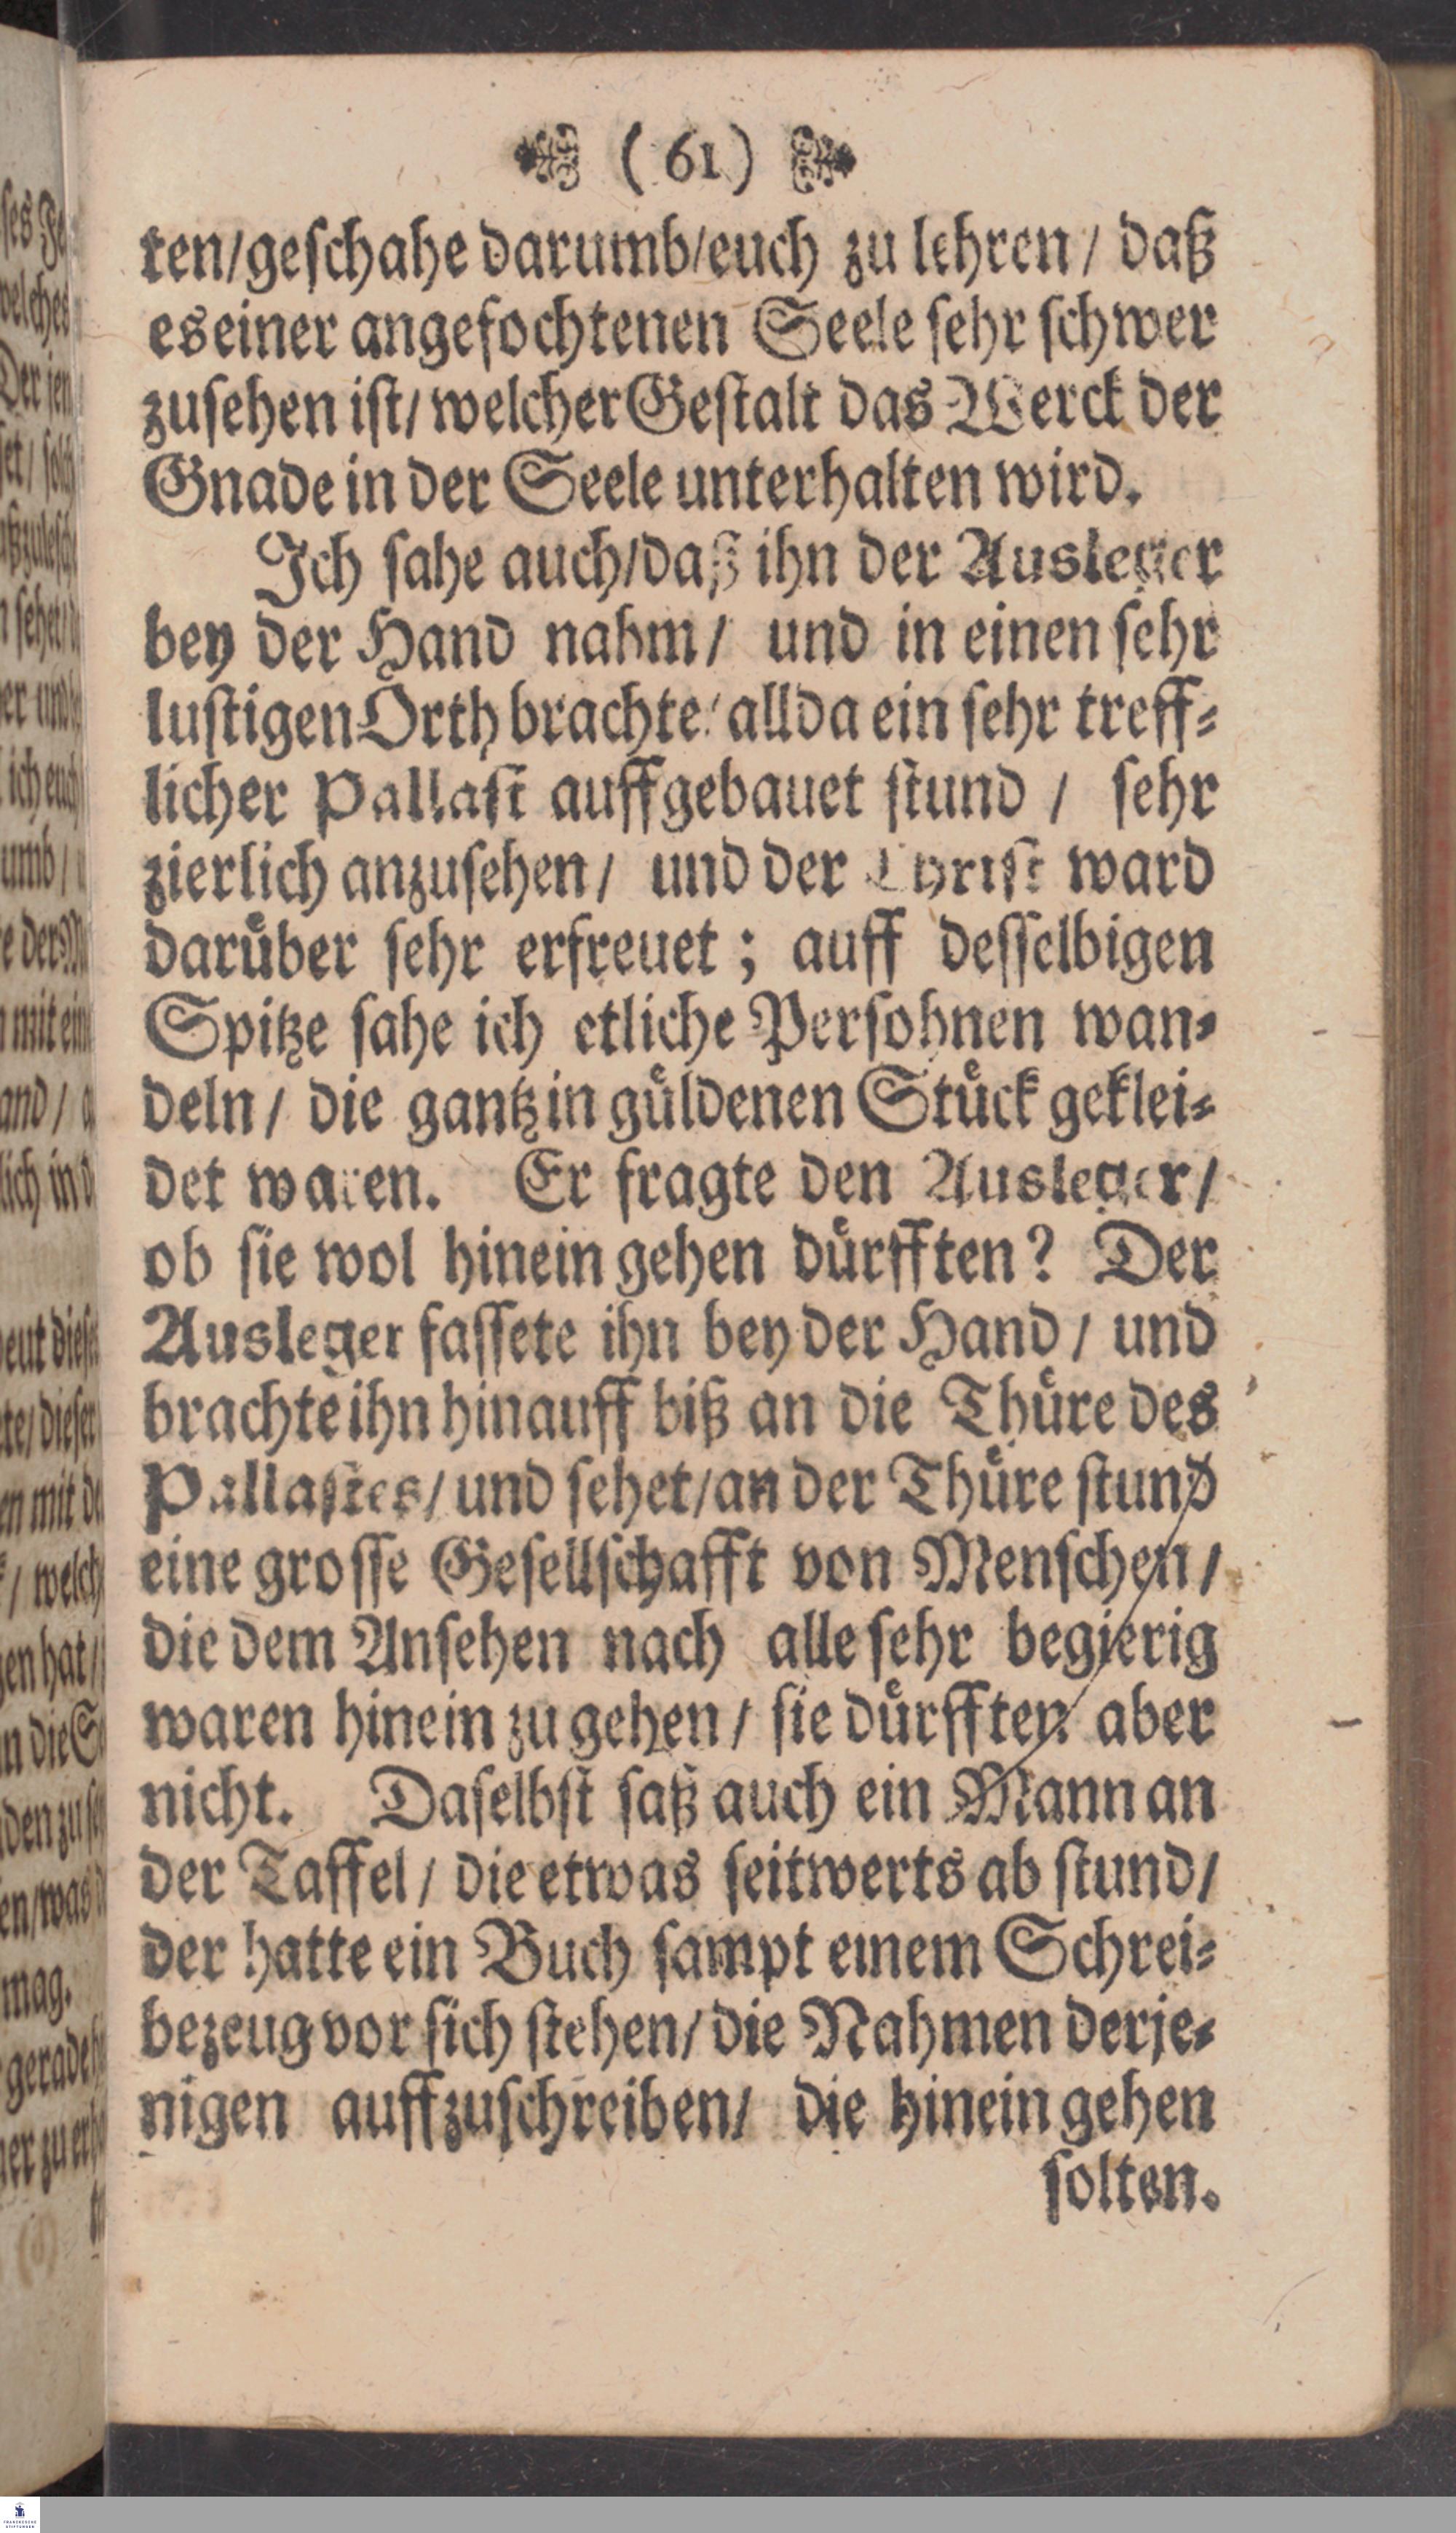 (61)
ten/geschahe darumb/euch zu lehren/ daß
es einer angefochtenen Seele sehr schwer
zusehen ist/ welcher Gestalt das Werck der
Gnade in der Seele unterhalten wird.
Ich sahe auch/daß ihn der Ausleger
bey der Hand nahm/ und in einen sehr
lustigen Orth brachte/ allda ein sehr treff-
licher Pallast auffgebauet stund / sehr
zierlich anzusehen/ und der Christ ward
darüber sehr erfreuet ; auff desselbigen
Spitze sahe ich etliche Persohnen wan-
deln/ die gantz in güldenen Stück geklei-
det waren. Er fragte den Ausleger/
ob sie wol hinein gehen dürfften? Der
Ausleger fassete ihn bey der Hand/ und
brachte ihn hinauff biß an die Thüre des
Pallastes/ und sehet/an der Thüre stund
eine grosse Gesellschafft von Menschen/
die dem Ansehen nach alle sehr begierig
waren hinein zu gehen/ sie dürfften aber
nicht. Daselbst saß auch ein Mann an
der Taffel/ die etwas seitwerts ab stund/
der hatte ein Buch sampt einem Schrei-
bezeug vor sich stehen/ die Nahmen derje-
nigen auffzuschreiben/ die hinein gehen
solten.